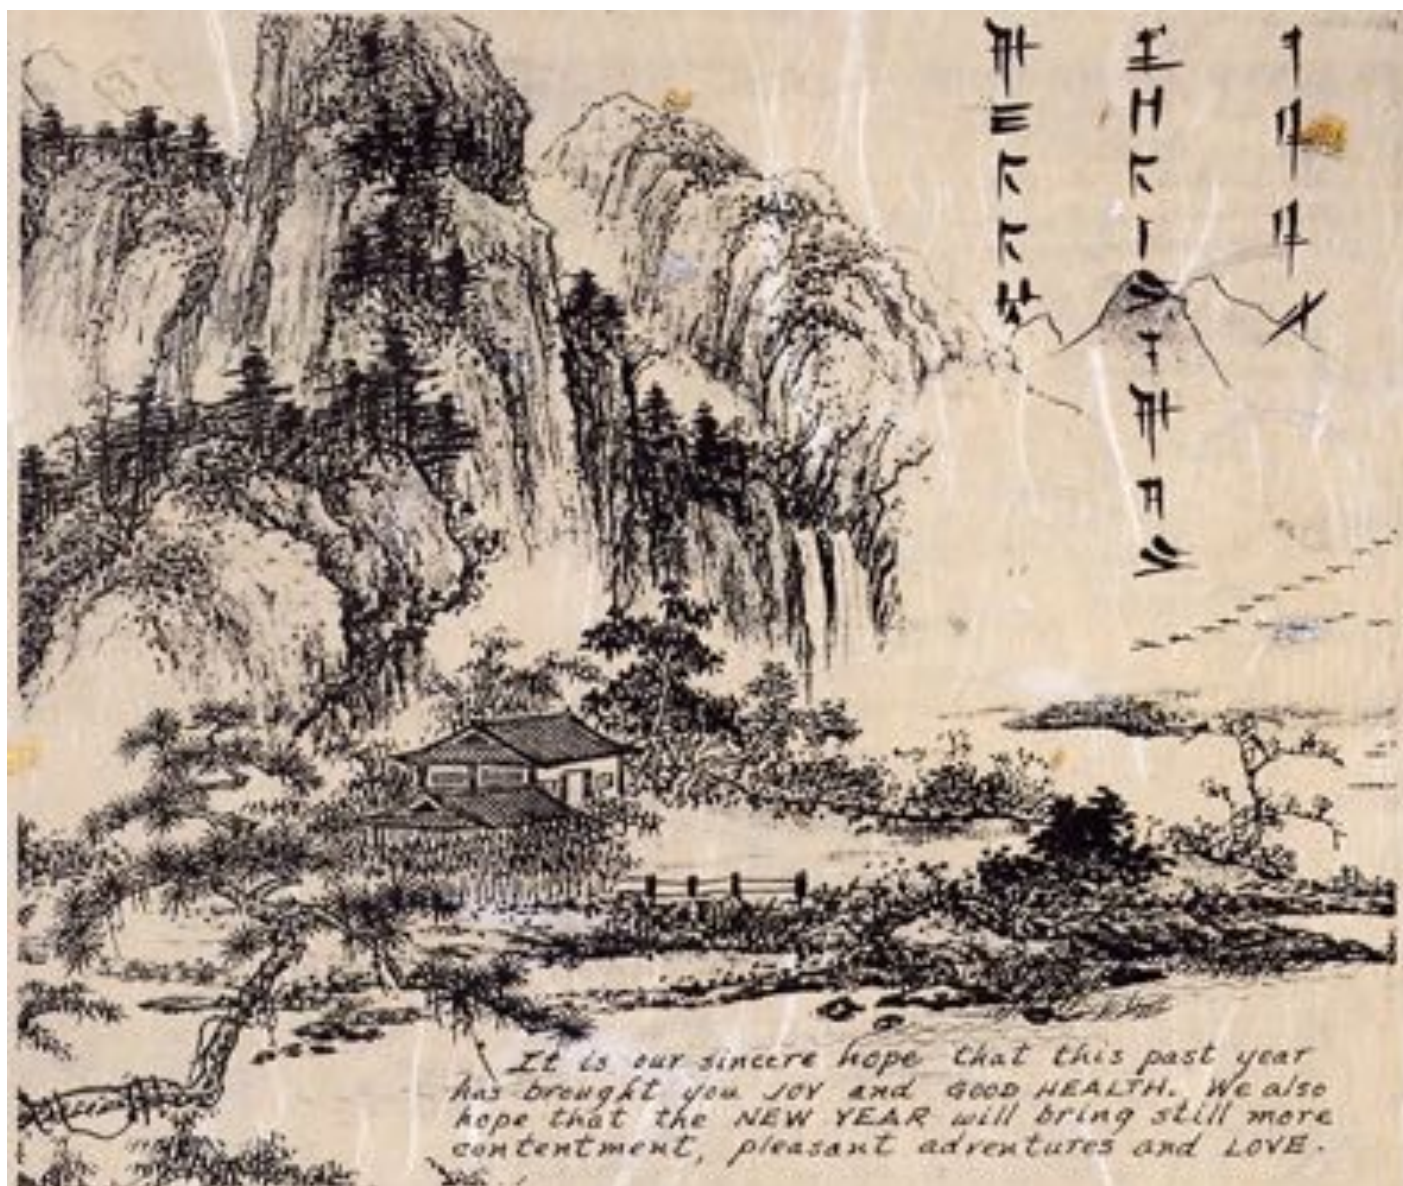 MERRY
CHRISTMAS
It is our sincere hope that this past year
has brought you JOY and GOOD HEALTH. We also
hope that the NEW YEAR will bring still more
contentment, pleasant adventures and LOVE.